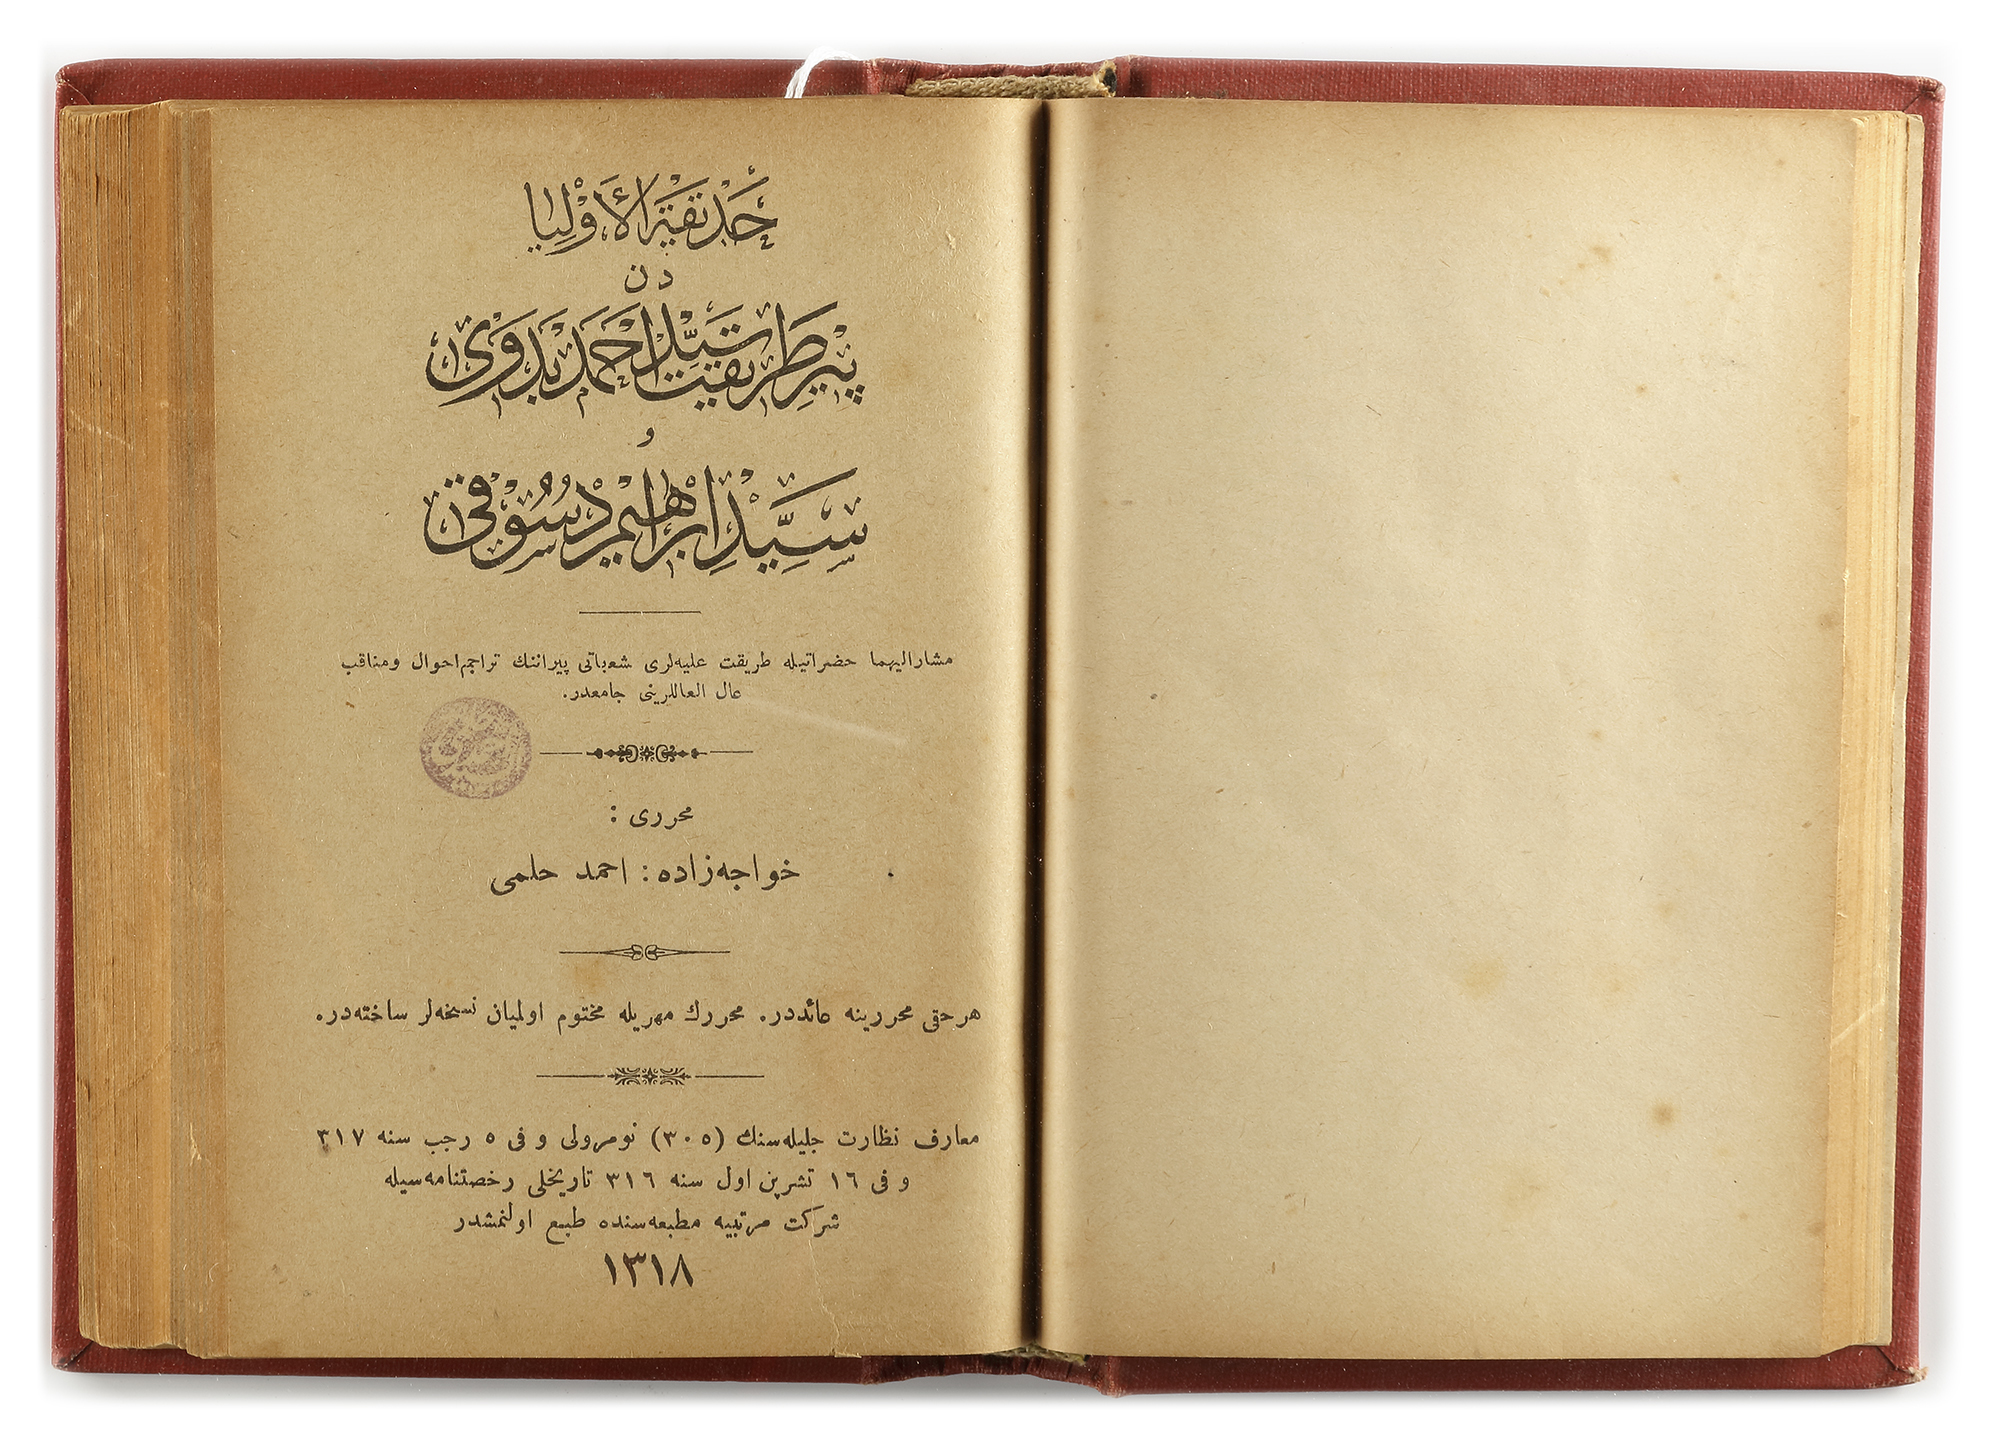 حَدیقَةُ الأَوْلِیَا
دن
پیرِ طَرِیقَت سَیِّد اَحْمَدْ بَدَوِی
و
سَیِّد اِبْرَاهِیم دُسُوقی
مشارالیهما حضراتیله طریقت علیه‌لری شعباتی پیراننك تراجم احوال ومناقب
عال العاللرینی جامعدر.
محرری :
خواجه‌زاده : احمد حلمی
هر حقی محررینه عائددر. محررك مهریله مختوم اولمیان نسخه‌لر ساخته‌در.
معارف نظارت جلیله‌سنك (٣٠٥) نومرولی و فی ٥ رجب سنه ٣١٧
و فی ١٦ تشرین اول سنه ٣١٦ تاریخلی رخصتنامه‌سیله
شرکت مرتبیه مطبعه‌سنده طبع اولنمشدر
١٣١٨